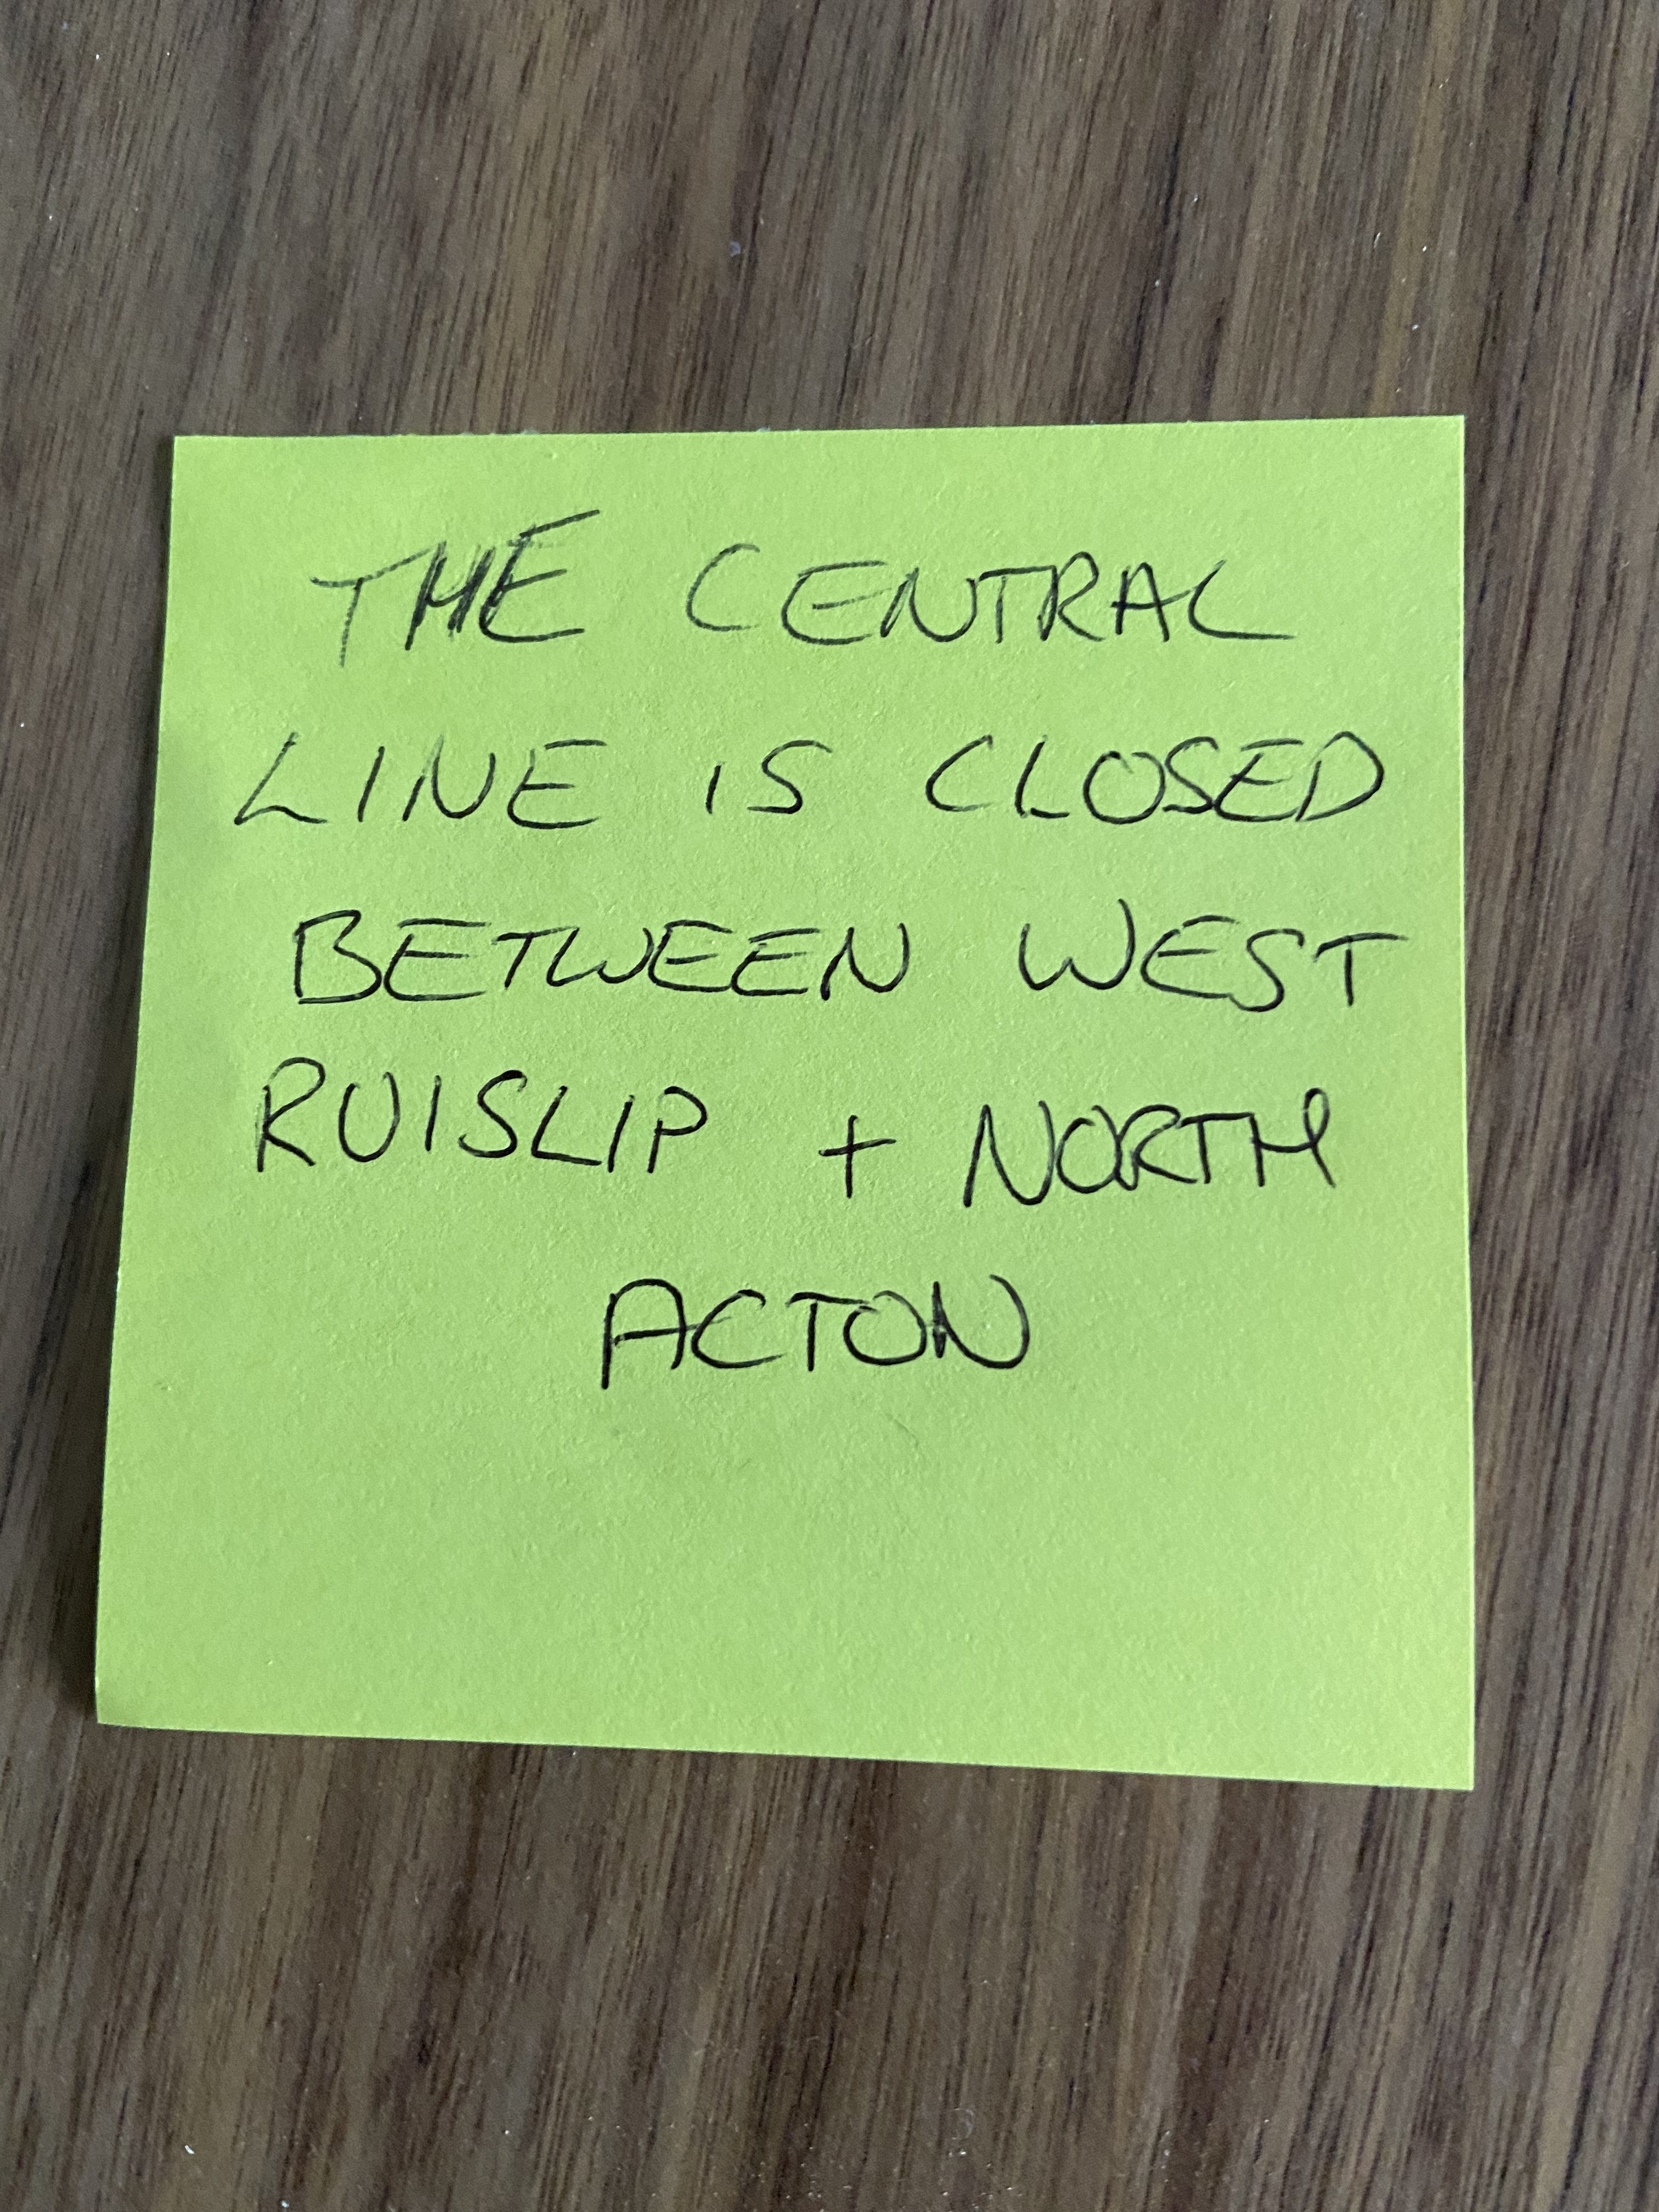 THE CENTRAL
LINE IS CLOSED
BETWEEN WEST
RUISLIP + NORTH
ACTON